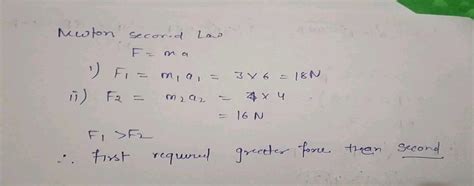 Newton second Law
F = ma
i) F₁ = m₁a₁ = 3×6 = 18N
ii) F₂ = m₂a₂ = 4×4
= 16N
F₁ >F₂
∴ first required greater force than second